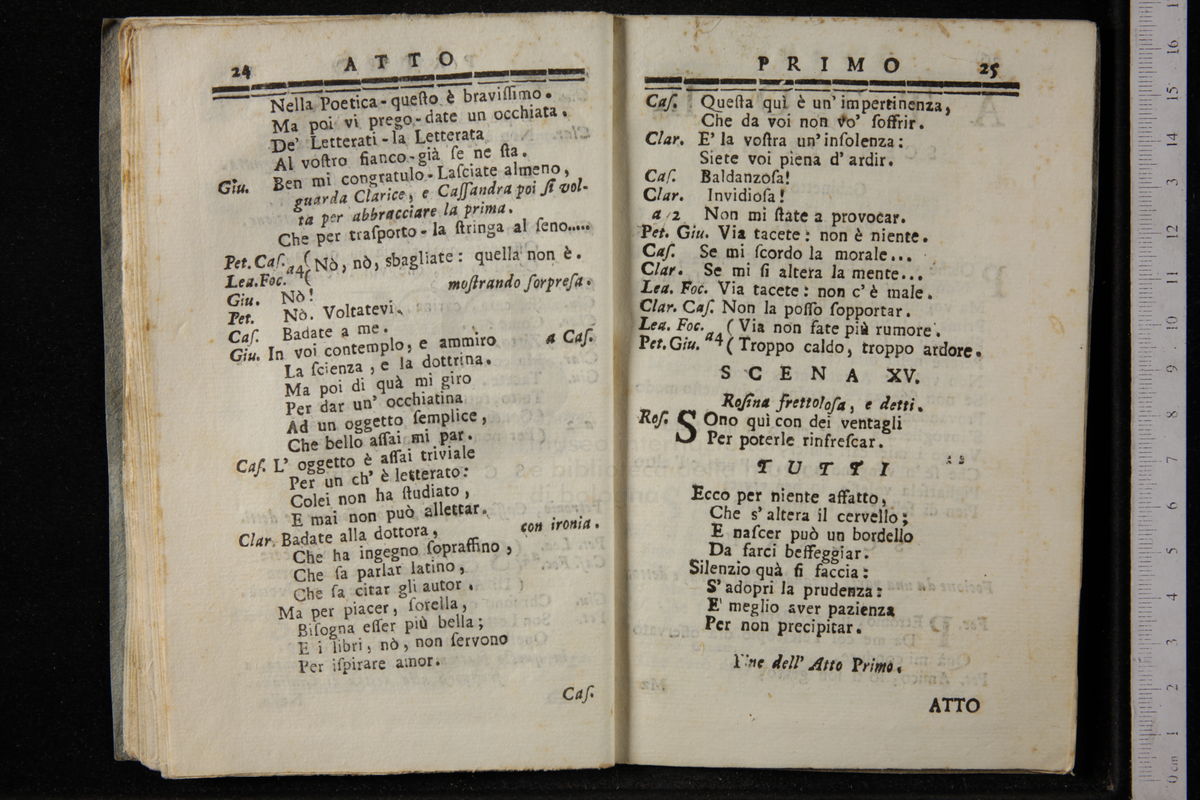 24 ATTO
Nella Poetica-queſto è braviſſimo.
Ma poi vi prego-date un occhiata.
De' Letterati-la Letterata
Al voſtro fianco-già ſe ne ſta.
Giu. Ben mi congratulo-Laſciate almeno,
guarda Clarice, e Caſſandra poi ſi vol-
ta per abbracciare la prima.
Che per traſporto-la ſtringa al ſeno.....
Pet. Caſ. a4 ( Nò, nò, sbagliate: quella non è.
Lea. Foc. ( moſtrando ſorpreſa.
Giu. Nò!
Pet. Nò. Voltatevi.
Caſ. Badate a me.
Giu. In voi contemplo, e ammiro a Caſ.
La ſcienza, e la dottrina.
Ma poi di quà mi giro
Per dar un' occhiatina
Ad un oggetto ſemplice,
Che bello aſſai mi par.
Caſ. L' oggetto è aſſai triviale
Per un ch' è letterato:
Colei non ha ſtudiato,
E mai non può allettar.
Clar. Badate alla dottora, con ironia.
Che ha ingegno ſopraffino,
Che ſa parlar latino,
Che ſa citar gli autor.
Ma per piacer, ſorella,
Biſogna eſſer più bella;
E i libri, nò, non ſervono
Per iſpirare amor.
Caſ.
PRIMO 25
Caſ. Queſta quì è un' impertinenza,
Che da voi non vo' ſoffrir.
Clar. E' la voſtra un' inſolenza:
Siete voi piena d' ardir.
Caſ. Baldanzoſa!
Clar. Invidioſa!
a 2 Non mi ſtate a provocar.
Pet. Giu. Via tacete: non è niente.
Caſ. Se mi ſcordo la morale...
Clar. Se mi ſi altera la mente...
Lea. Foc. Via tacete: non c' è male.
Clar. Caſ. Non la poſſo ſopportar.
Lea. Foc. a4 ( Via non fate più rumore.
Pet. Giu. ( Troppo caldo, troppo ardore.
SCENA XV.
Roſina frettoloſa, e detti.
Roſ. SOno quì con dei ventagli
Per poterle rinfreſcar.
TUTTI
Ecco per niente affatto,
Che s' altera il cervello;
E naſcer può un bordello
Da farci beffeggiar.
Silenzio quà ſi faccia:
S' adopri la prudenza:
E' meglio aver pazienza
Per non precipitar.
Fine dell' Atto Primo.
ATTO